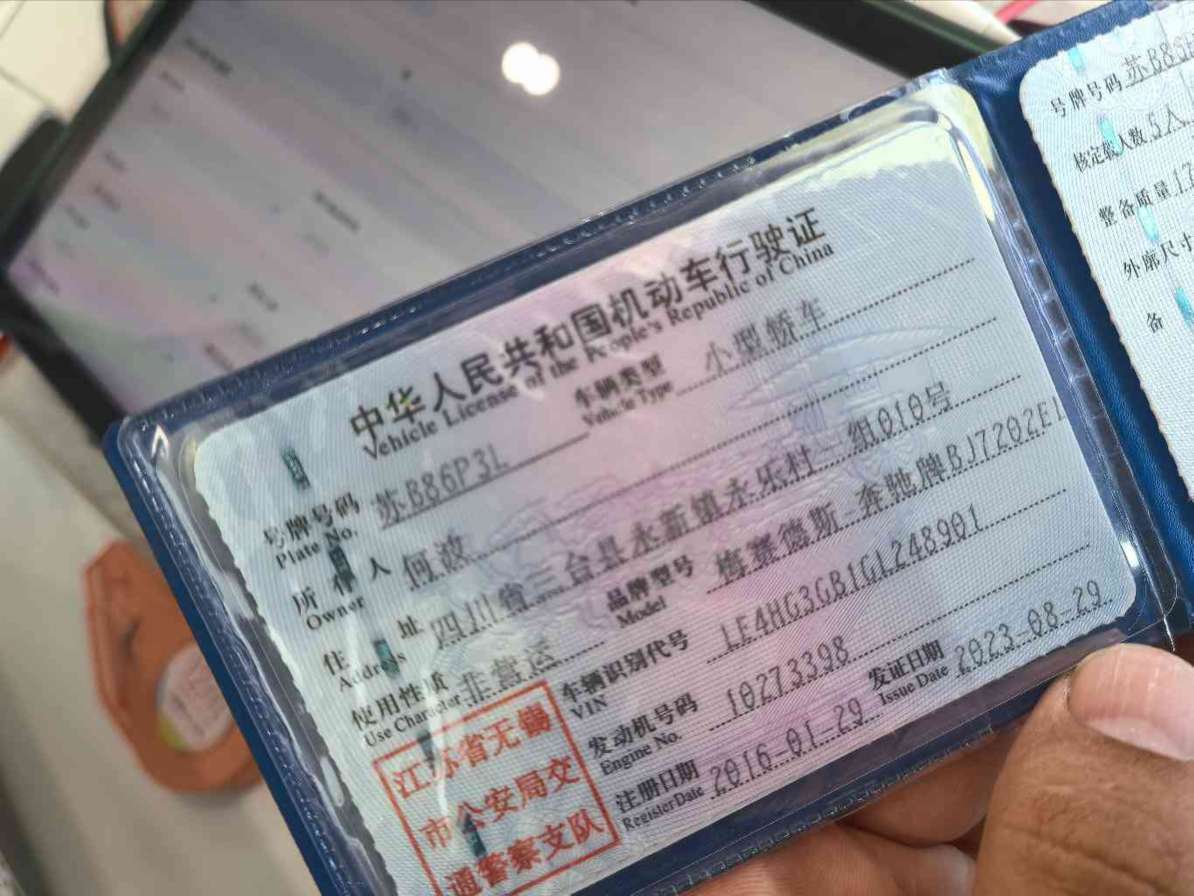 中华人民共和国机动车行驶证
Vehicle License of the People's Republic of China
号牌号码 苏B86P3L 车辆类型 小型轿车
Plate No. Vehicle Type
所有人 何波
Owner
住址 四川省三台县永新镇永乐村一组010号
Address
使用性质 非营运 品牌型号 梅赛德斯-奔驰牌BJ7202EL
Use Character Model
车辆识别代号 LE4HG3GB1GL248901
VIN
发动机号码 10273398
Engine No.
注册日期 2016-01-29 发证日期 2023-08-29
Register Date Issue Date
江苏省无锡
市公安局交
通警察支队
号牌号码 苏B86
核定载人数 5人
整备质量 17
外廓尺寸
备